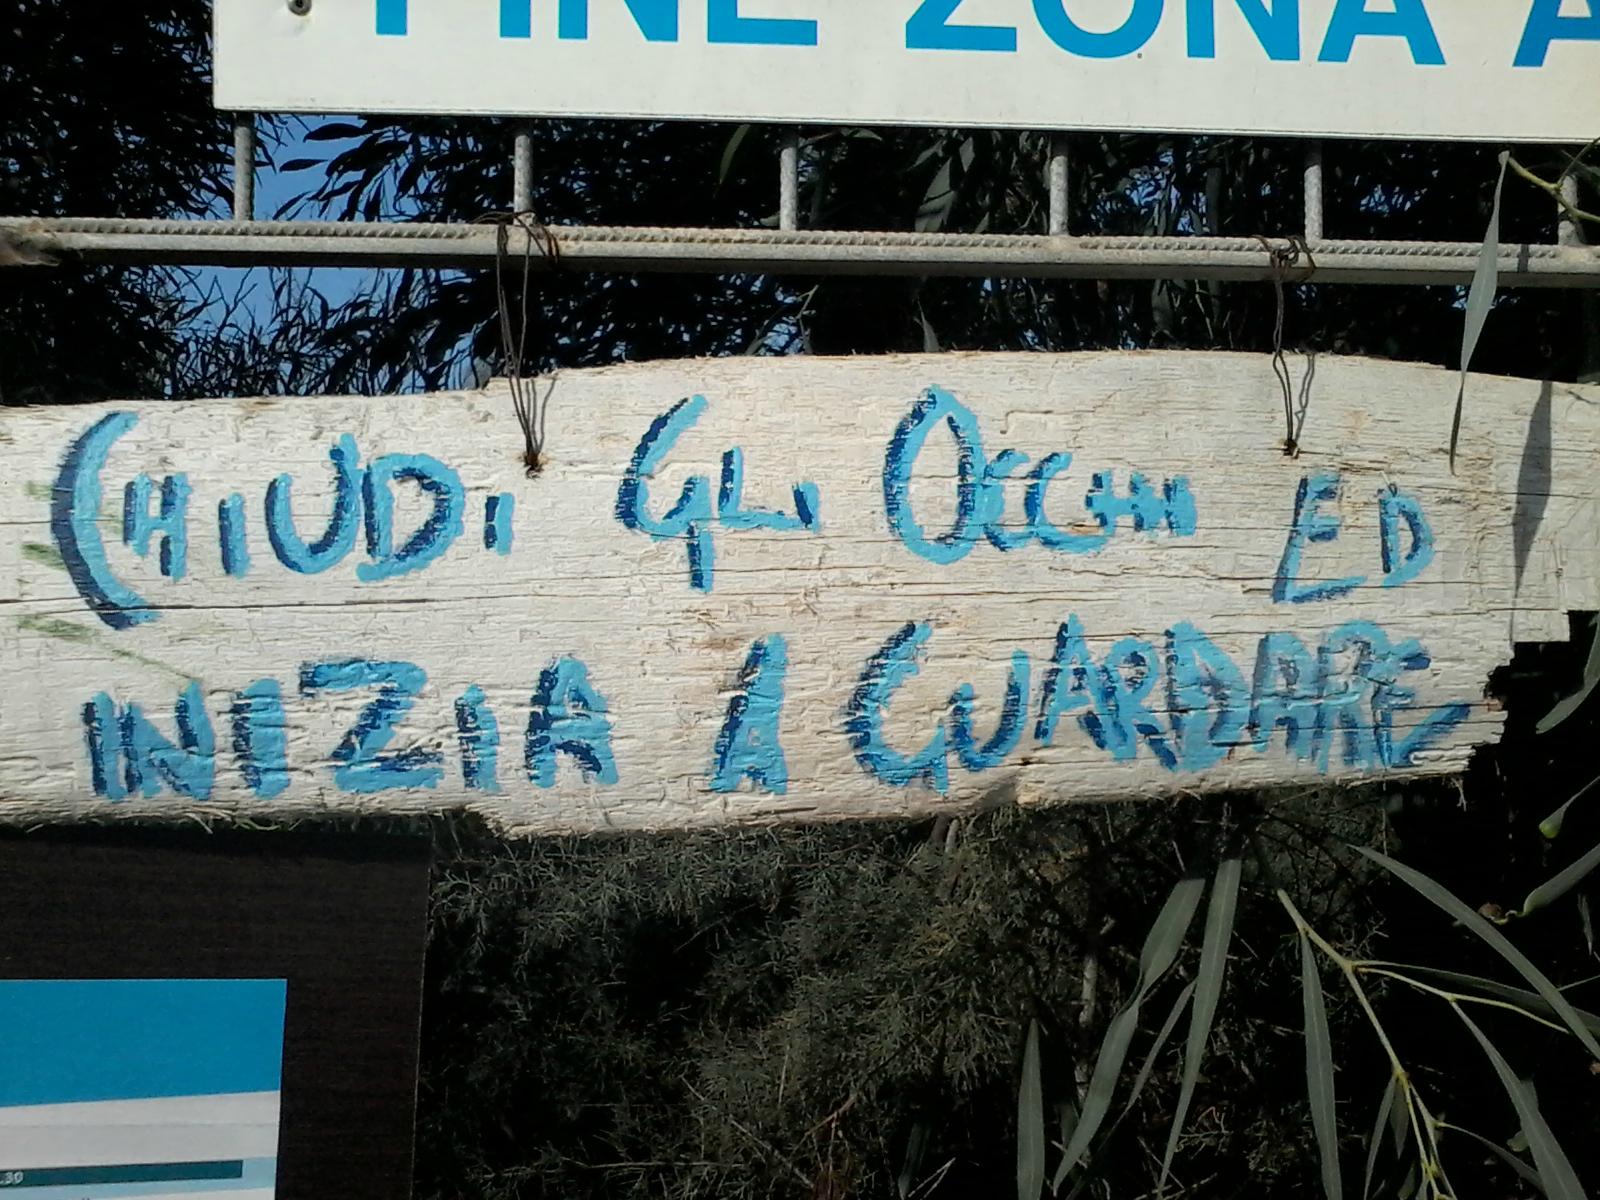 FINE ZONA A
CHIUDI GLI OCCHI ED
INIZIA A GUARDARE
.30